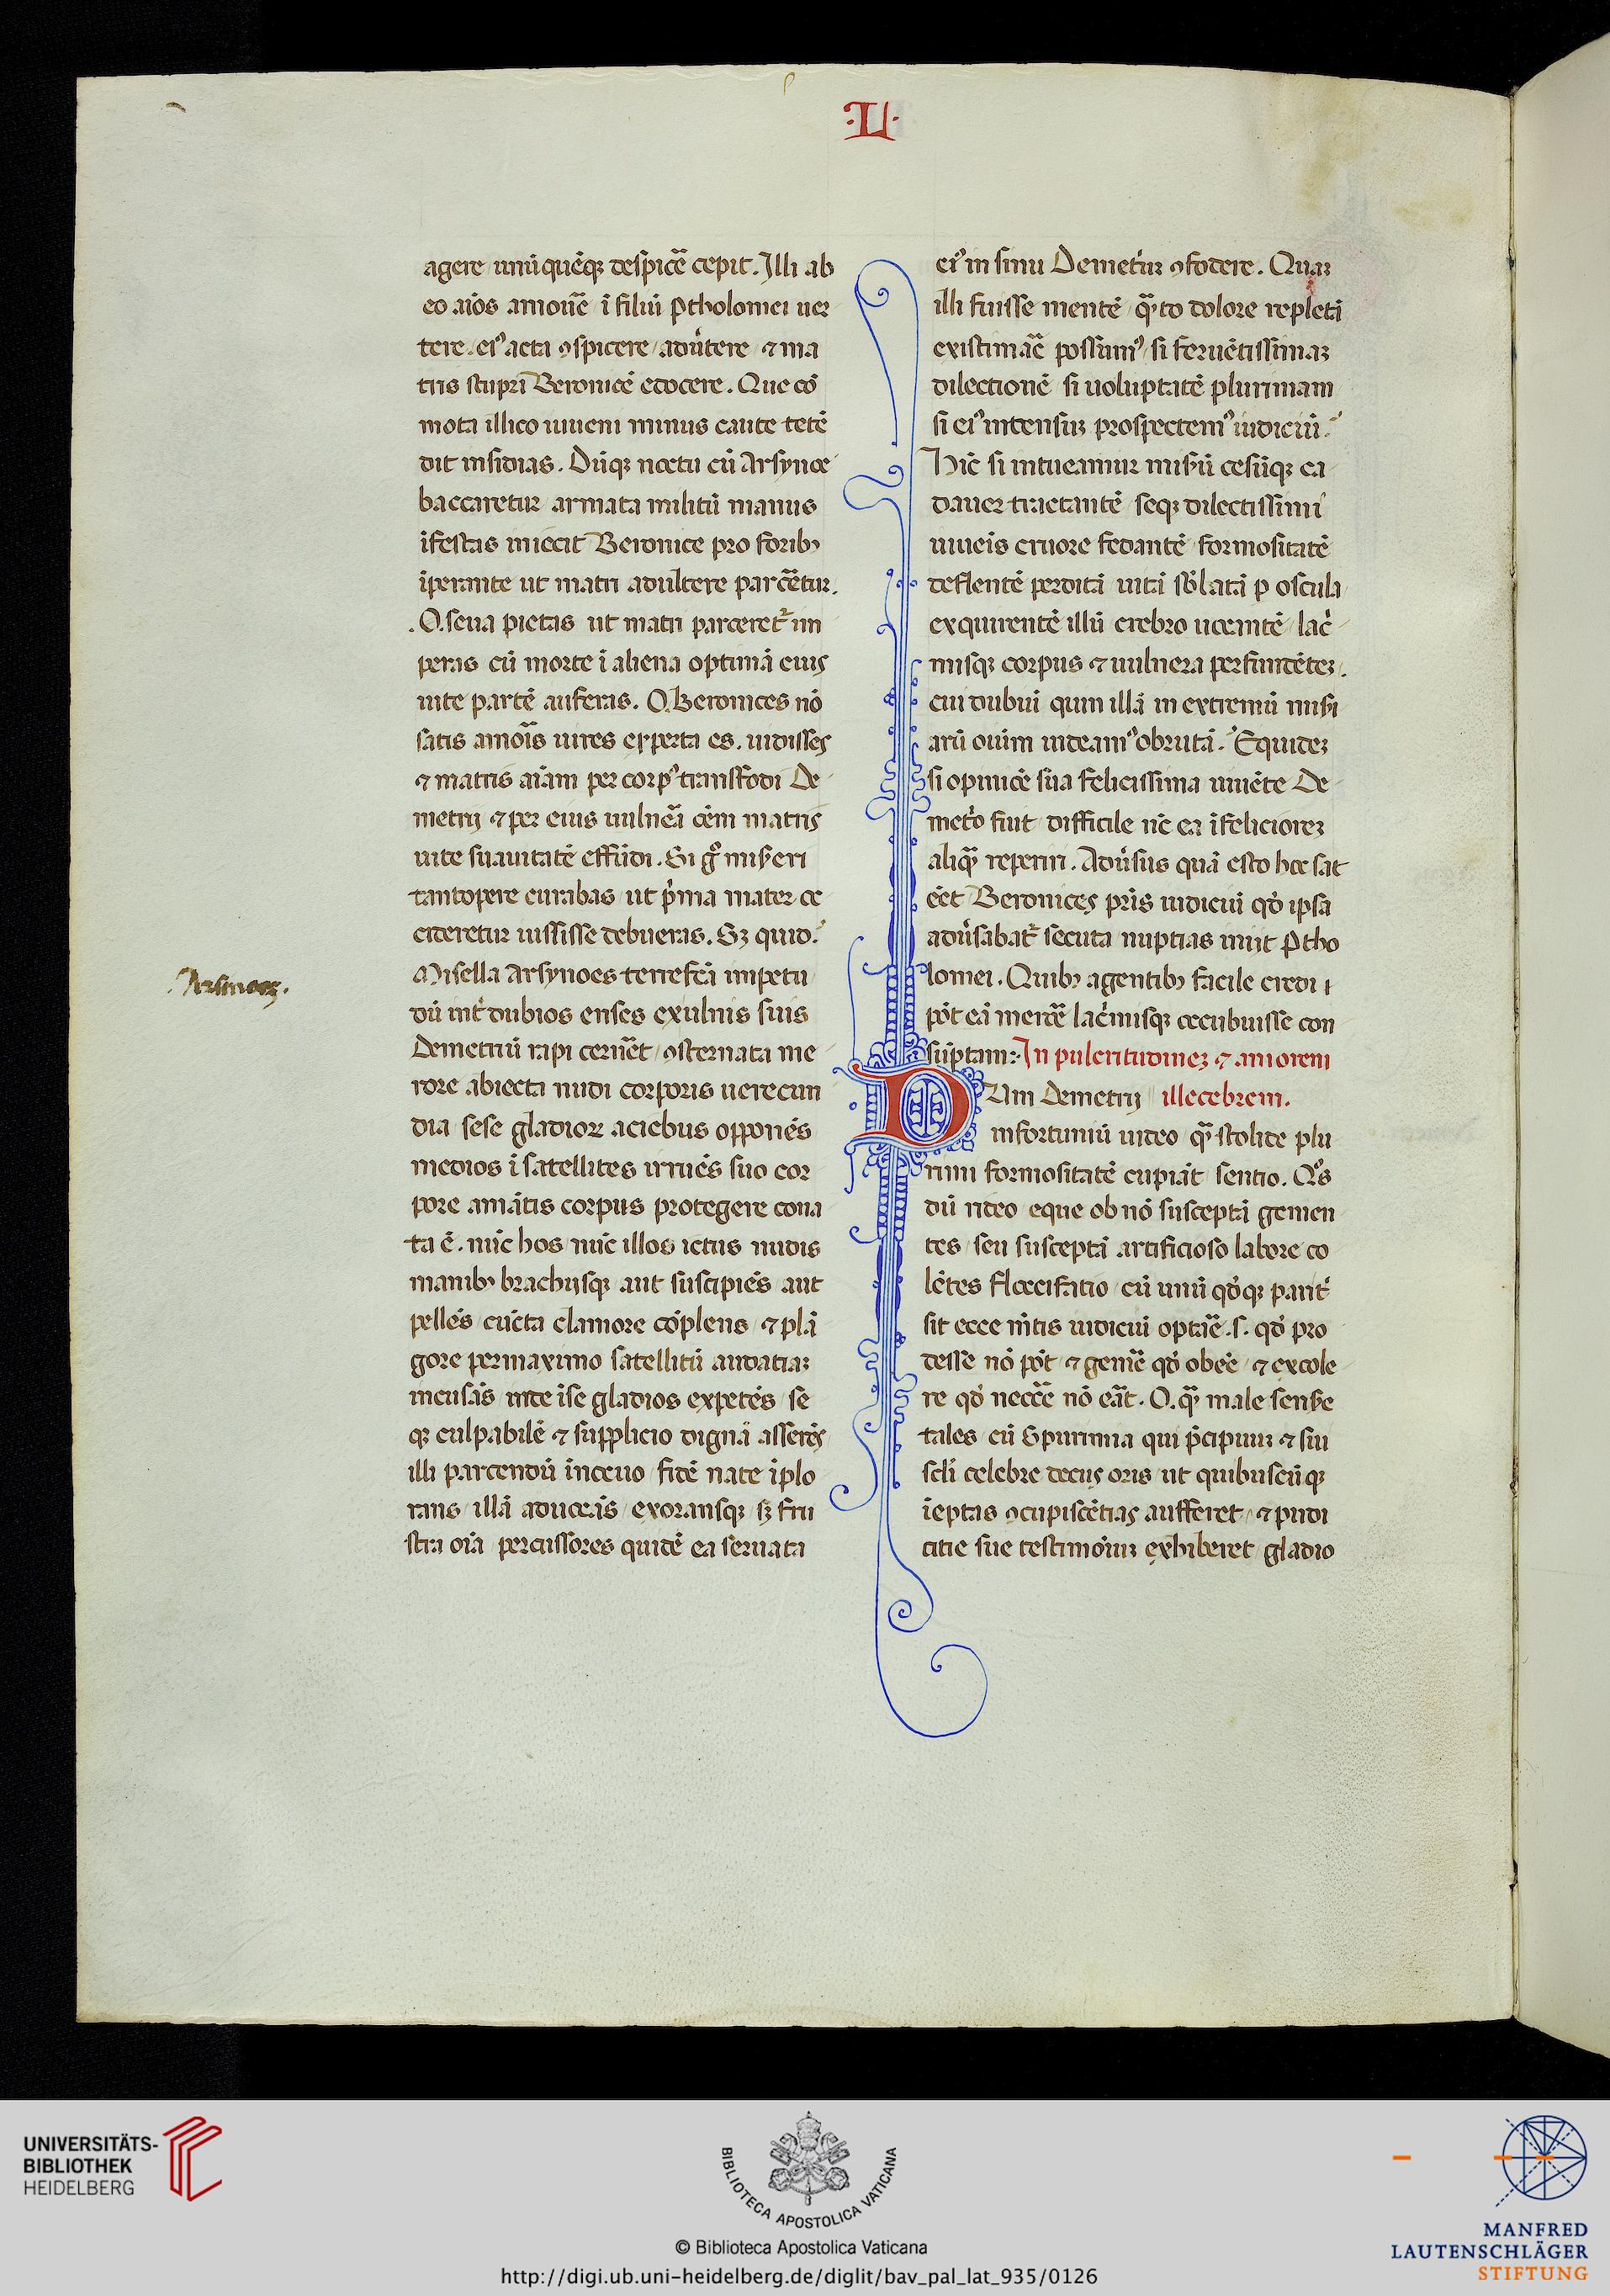 ·L·
agere unūquēq; despicē cepit. Illi ab
eo aīos amouē ī filiū Ptholomei uer
tere. eiꝰ acta ꝯspicere aduͥtere ⁊ ma
tris stupri Beronicē edocere. Que cō
mota illico iuueni minus caute tetē
dit insidias. Dūq; noctu cū Arsynoe
baccaretur armata militū manus
īfestas iniecit Beronice pro foribꝫ
īperante ut matri adultere parcētur.
O seua pietas ut matri parceret̄ im
peras cū morte ī aliena optimā eius
uite partē auferas. O Beronices nō
satis amoīs uires experta es. uidisses
⁊ matris aīam per corpꝰ transfodi De
metrij ⁊ per eius uulnēa cēm matris
uite suauitatē effūdi. Si gͦ miseri
tantopere curabas ut pͥma mater ce
cideretur iussisse debueras. Sꝫ quid.
Misella Arsynoes terrefcā impetu
Arsinoes.
dū intͥ dubios enses exulnis suis
Demetriū rapi cernēt ꝯsternata me
rore abiecta nudi corporis uerecun
dia sese gladioꝝ aciebus opponēs
medios ī satellites irruēs suo cor
pore amātis corpus protegere cona
ta ē. nūc hos nūc illos ictus nudis
manibꝫ brachijsq; aut suscipiēs aut
pellēs cūcta clamore cōplens ⁊ plā
gore permaximo satellitū audatiaꝫ
incusās inde īse gladios expetēs se
q; culpabilē ⁊ supplicio dignā asserēs
illi parcendū inceuo fidē nate īplo
rans illā aduocās exoransq; sꝫ fru
stra oīa percussores quidē ea seruata
eiꝰ in sinu Demetriū ꝯfodere. Quaꝫ
illi fuisse mentē qͣto dolore repletā
existimāē possumꝰ si feruētissimaꝫ
dilectionē si uoluptatē plurimam
si eiꝰ intensiuꝫ prospectemꝰ iudiciū.
Hīc si intueamur misū cesūq; ca
dauer tractantē seq; dilectissimi
iuueīs cruore fedantē formositatē
deflentē perditā uitā sblatā p oscula
exquirentē illū crebro uocantē lacͥ
misq; corpus ⁊ uulnera perfundētez.
cui dubui quin illā in extremū misi
arū ouim uideamꝰ obrutā. Equidez
si opinioē sua felicissima uiuēte De
metͥo fuit difficile nē ea īfelicioreꝫ
aliqͣ reperiri. Aduͥsus quā esto hoc sat
eēt Beronices pris iudiciū qd̓ ipsa
aduͥsabat̄ secuta nuptias iniit Ptho
lomei. Quibꝫ agentibꝫ facile credi
pōt eā merōē lacͥmisq; occubuisse con
sūptam: In pulcritudinez ⁊ amorem
illecebrem.
DUm Demetrij
infortuniū uideo qͣ stolide plu
rimi formositatē cupiāt sentio. Qͦs
dū rideo eque ob nō susceptā gemen
tes seu susceptā artificioso labore co
lētes floccifacio cū unū qd̓q; paritͥ
sit ecce mītis iudiciū optāē .s. qd̓ pro
desse nō pōt ⁊ gemē qd̓ obeē ⁊ excole
re qd̓ necc̄e nō eāt. O qͣ male sensͥe
tales cū Spurinna qui pͥcipuuꝫ ⁊ siu
scli celebre decus oris ut quibuscūq;
īeptas ꝯcupiscētias aufferet ⁊ pudi
citie sue testimoīuꝫ exhiberet gladio
UNIVERSITÄTS-
BIBLIOTHEK
HEIDELBERG
BIBLIOTECA APOSTOLICA VATICANA
© Biblioteca Apostolica Vaticana
http://digi.ub.uni-heidelberg.de/diglit/bav_pal_lat_935/0126
MANFRED
LAUTENSCHLÄGER
STIFTUNG